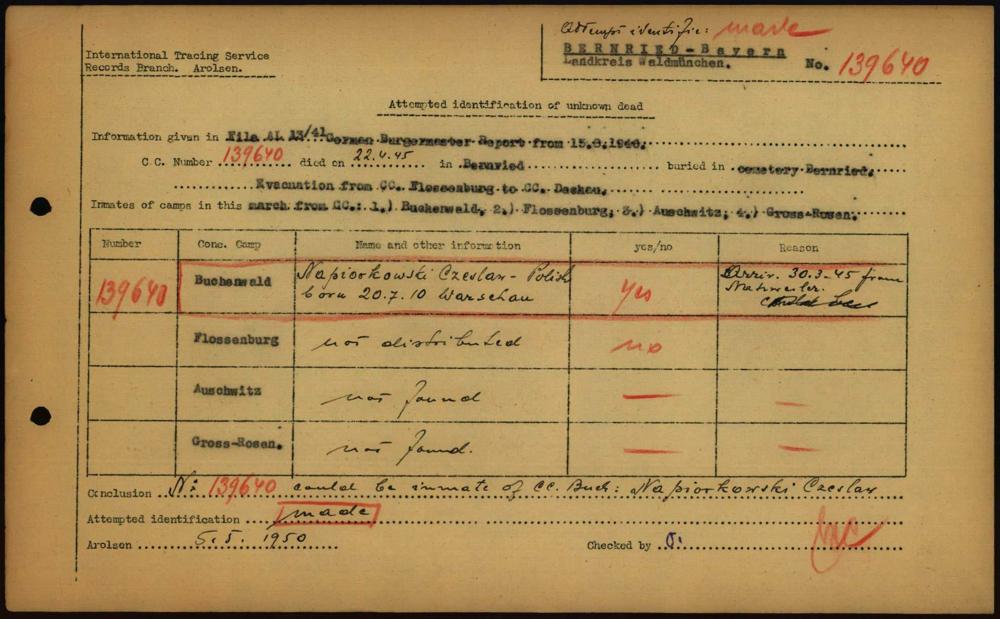 Attempt identific: made
International Tracing Service
Records Branch. Arolsen.
BERNRIED-Bayern
Landkreis Waldmünchen.
No. 139640
Attempted identification of unknown dead
Information given in File AL 13/41 German Burgermaster Report from 15.8.1946.
C.C. Number 139640 died on 22.4.45 in Bernried buried in cemetery Bernried.
Evacuation from CC. Flossenburg to CC. Dachau.
Inmates of camps in this march from CC.: 1.) Buchenwald, 2.) Flossenburg, 3.) Auschwitz, 4.) Gross-Rosen.
Number Conc. Camp Name and other information yes/no Reason
139640 Buchenwald Napiorkowski Czeslaw - Polish born 20.7.10 Warschau yes Arriv. 30.3.45 from Natzweiler.
Flossenburg not distributed no
Auschwitz not found — —
Gross-Rosen. not found. — —
Conclusion N: 139640 could be inmate of CC. Buch: Napiorkowski Czeslaw
Attempted identification made
Arolsen 5.5. 1950 Checked by